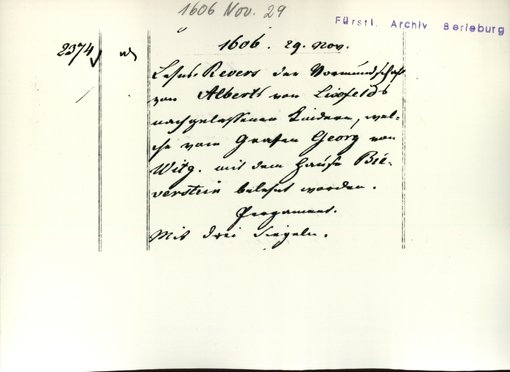 1606 Nov. 29
Fürstl. Archiv Berleburg
2374
1606. 29. Nov.
Lehns-Revers der Vormundschaft
von Alberts von Lixfelds
nachgelassenen Kindern, wel-
che vom Grafen Georg von
Witg. mit dem Hause Bie-
verstein belehnt worden.
Pergament.
Mit drei Siegeln.